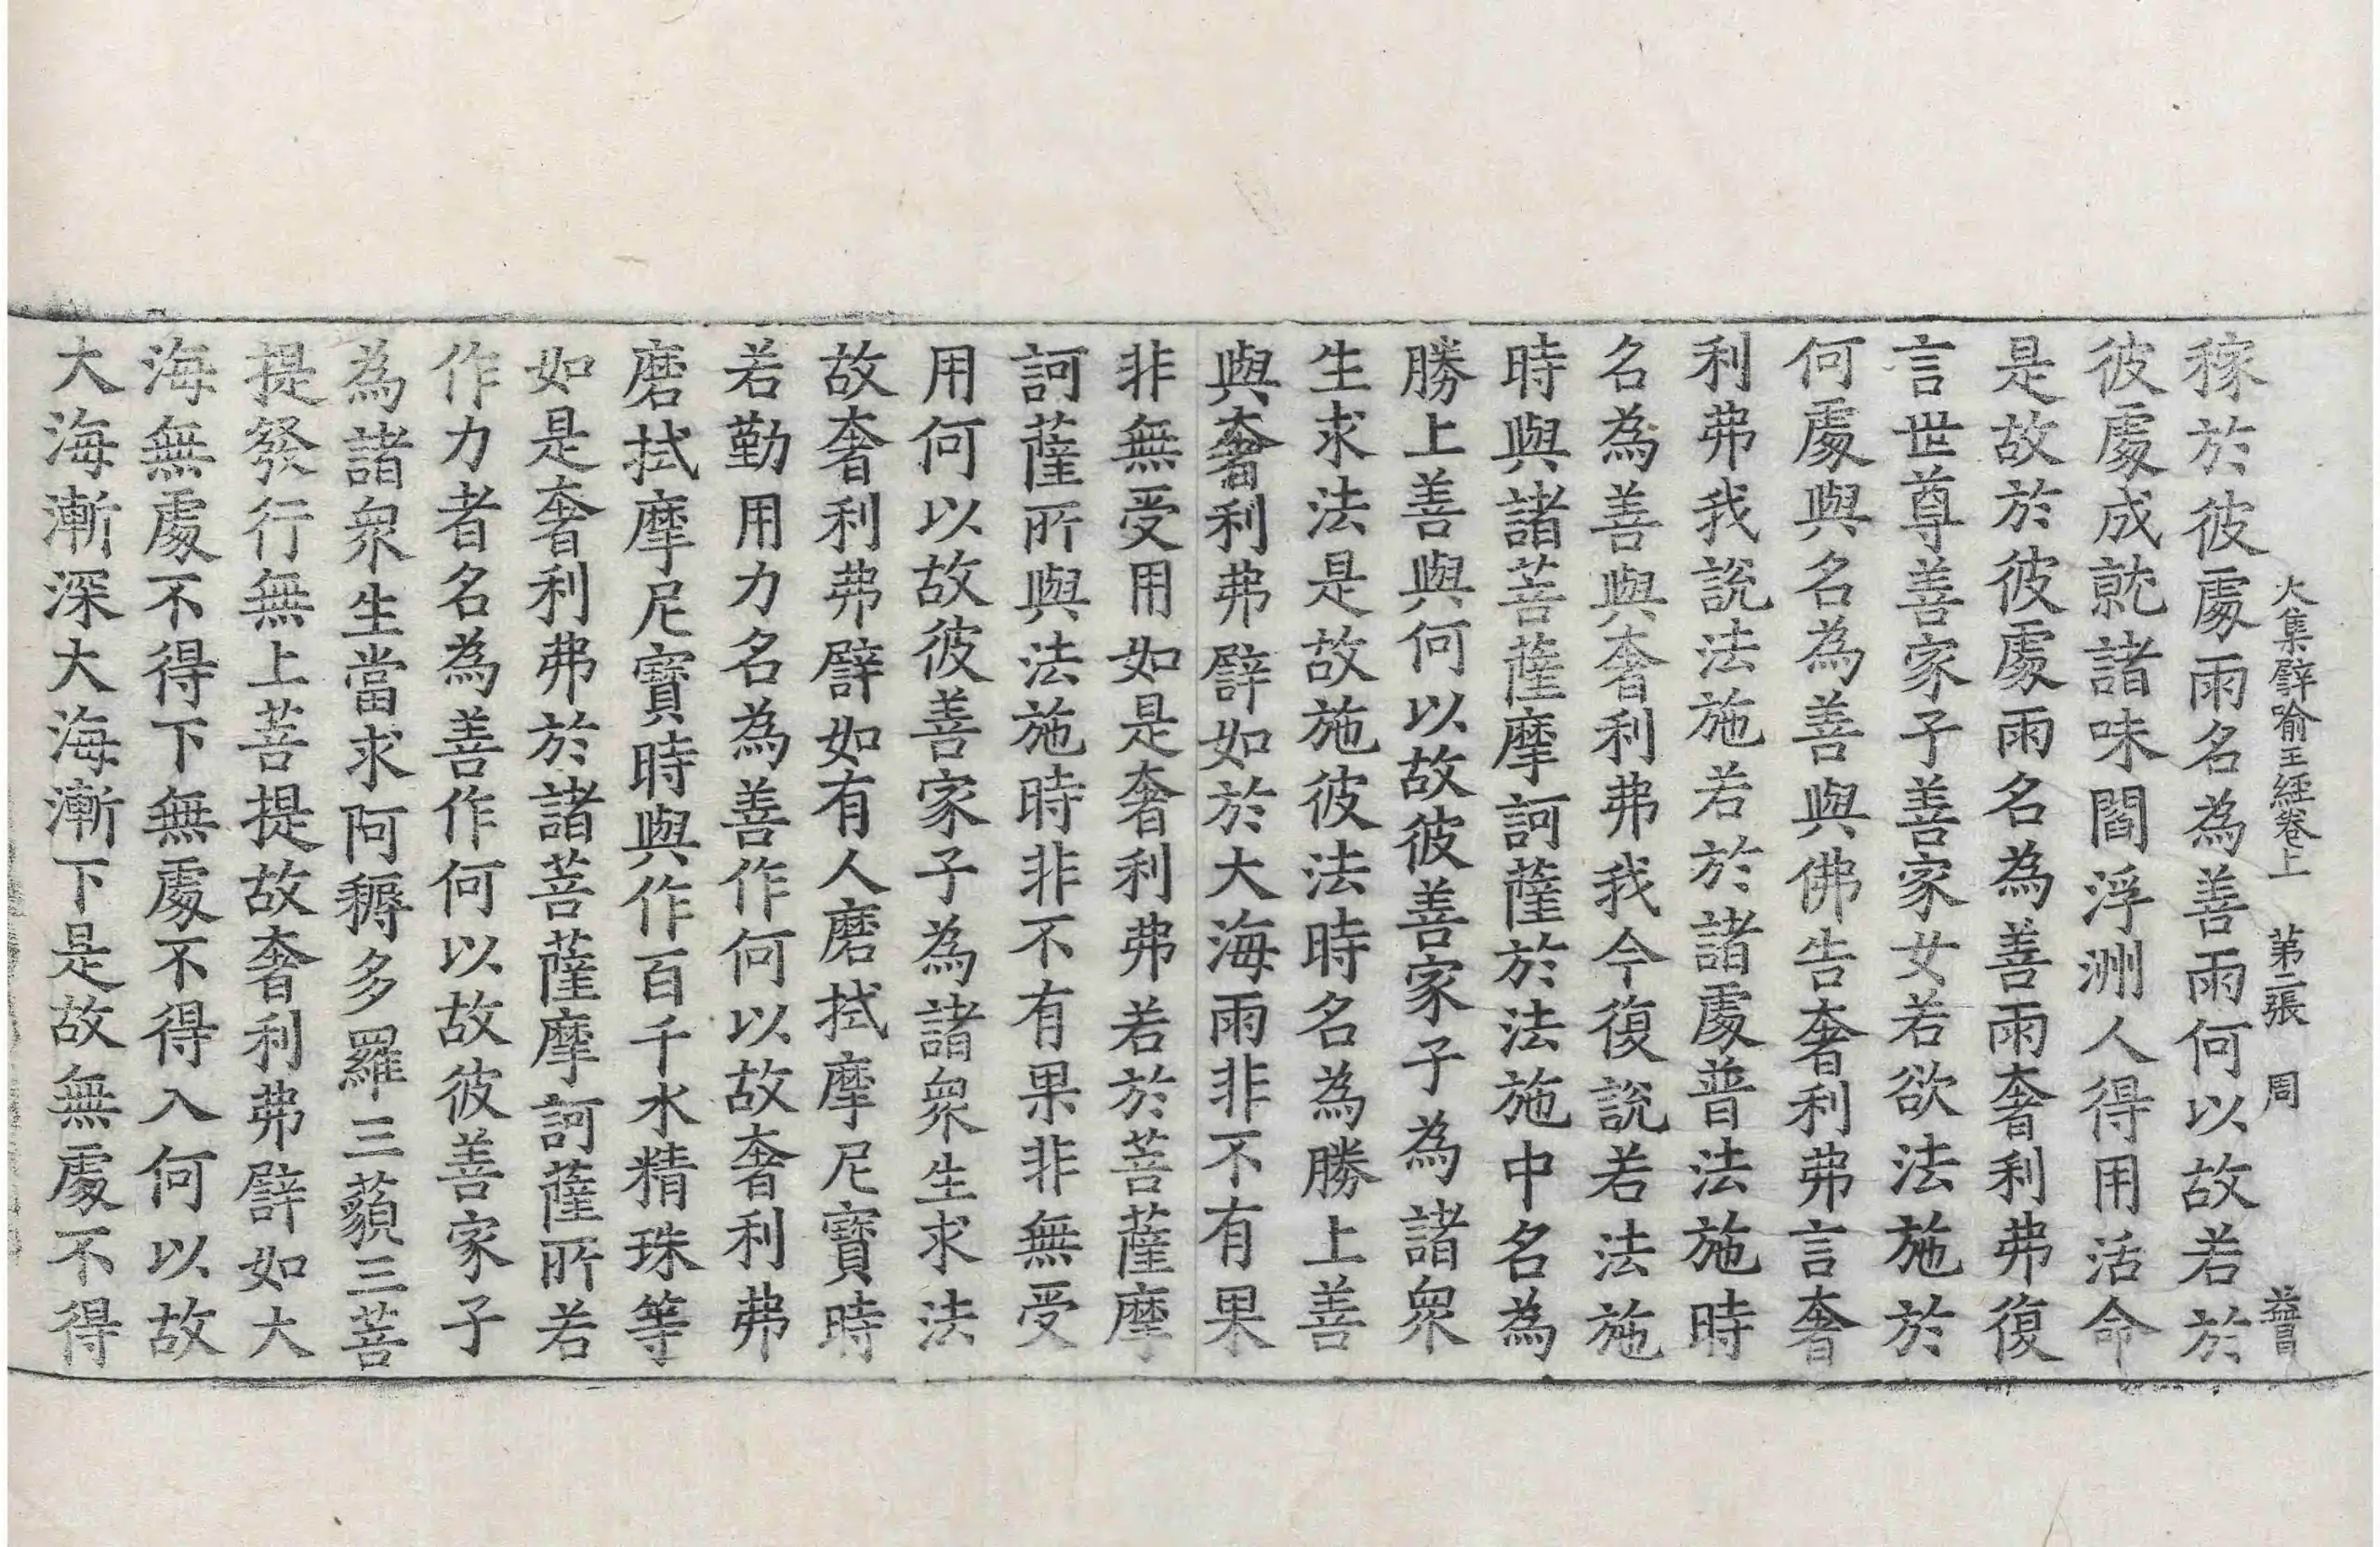 大集譬喻王經卷上　第二張　周　益習
稼於彼處雨名為善雨何以故若於
彼處成就諸味閻浮洲人得用活命
是故於彼處雨名為善雨奢利弗復
言世尊善家子善家女若欲法施於
何處與名為善與佛告奢利弗言奢
利弗我說法施若於諸處普法施時
名為善與奢利弗我今復說若法施
時與諸菩薩摩訶薩於法施中名為
勝上善與何以故彼善家子為諸衆
生求法是故施彼法時名為勝上善
與奢利弗譬如於大海雨非不有果
非無受用如是奢利弗若於菩薩摩
訶薩所與法施時非不有果非無受
用何以故彼善家子為諸衆生求法
故奢利弗譬如有人磨拭摩尼寶時
若勤用力名為善作何以故奢利弗
磨拭摩尼寶時與作百千水精珠等
如是奢利弗於諸菩薩摩訶薩所若
作力者名為善作何以故彼善家子
為諸衆生當求阿耨多羅三藐三菩
提發行無上菩提故奢利弗譬如大
海無處不得下無處不得入何以故
大海漸深大海漸下是故無處不得